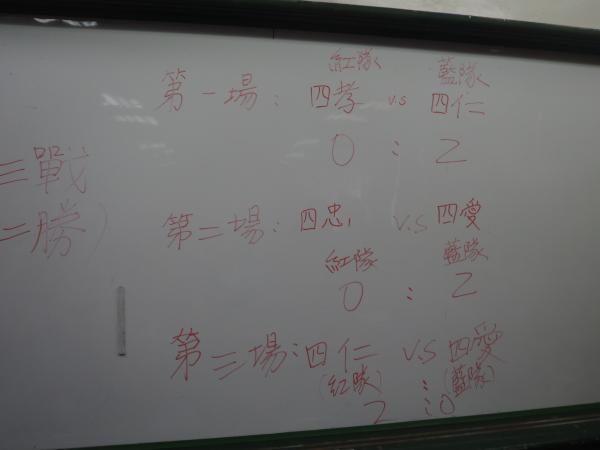 三戰
二勝)
紅隊 藍隊
第一場: 四孝 vs 四仁
0 : 2
第二場: 四忠, v.s 四愛
紅隊 藍隊
0 : 2
第三場: 四仁 v.s 四愛
(紅隊) : (藍隊)
2 : 0